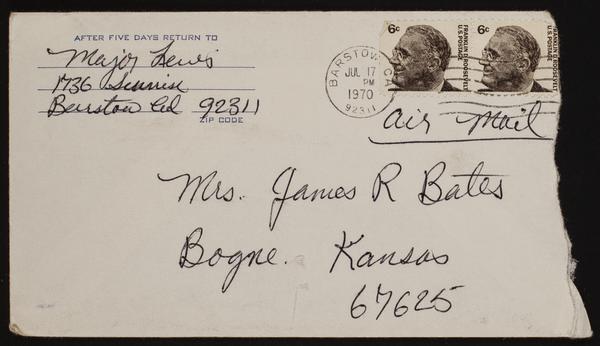 AFTER FIVE DAYS RETURN TO
Major Lewis
1736 Sunrise
Barstow Cal 92311
ZIP CODE
BARSTOW, CA
JUL 17
PM
1970
92311
6c
FRANKLIN D. ROOSEVELT
U.S. POSTAGE
6c
FRANKLIN D. ROOSEVELT
U.S. POSTAGE
air mail
Mrs. James R Bates
Bogne. Kansas
67625